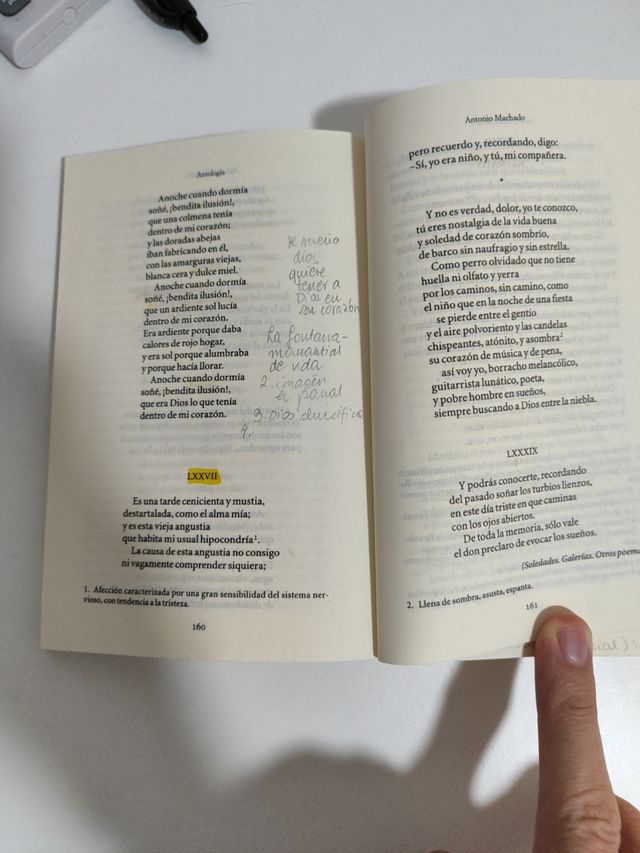 Antología
Anoche cuando dormía
soñé, ¡bendita ilusión!,
que una colmena tenía
dentro de mi corazón;
y las doradas abejas
iban fabricando en él,
con las amarguras viejas,
blanca cera y dulce miel.
Anoche cuando dormía
soñé, ¡bendita ilusión!,
que un ardiente sol lucía
dentro de mi corazón.
Era ardiente porque daba
calores de rojo hogar,
y era sol porque alumbraba
y porque hacía llorar.
Anoche cuando dormía
soñé, ¡bendita ilusión!,
que era Dios lo que tenía
dentro de mi corazón.
se sueño
dios,
quiere
tener a
Dios en
su corazón
La fontana-
manantial
de vida
2. imagen
el panal
3. Dios
4.
LXXVII
Es una tarde cenicienta y mustia,
destartalada, como el alma mía;
y es esta vieja angustia
que habita mi usual hipocondría¹.
La causa de esta angustia no consigo
ni vagamente comprender siquiera;
1. Afección caracterizada por una gran sensibilidad del sistema ner-
vioso, con tendencia a la tristeza.
160
Antonio Machado
pero recuerdo y, recordando, digo:
–Sí, yo era niño, y tú, mi compañera.
*
Y no es verdad, dolor, yo te conozco,
tú eres nostalgia de la vida buena
y soledad de corazón sombrío,
de barco sin naufragio y sin estrella.
Como perro olvidado que no tiene
huella ni olfato y yerra
por los caminos, sin camino, como
el niño que en la noche de una fiesta
se pierde entre el gentío
y el aire polvoriento y las candelas
chispeantes, atónito, y asombra²
su corazón de música y de pena,
así voy yo, borracho melancólico,
guitarrista lunático, poeta,
y pobre hombre en sueños,
siempre buscando a Dios entre la niebla.
LXXXIX
Y podrás conocerte, recordando
del pasado soñar los turbios lienzos,
en este día triste en que caminas
con los ojos abiertos.
De toda la memoria, sólo vale
el don preclaro de evocar los sueños.
(Soledades. Galerías. Otros poema
2. Llena de sombra, asusta, espanta.
161